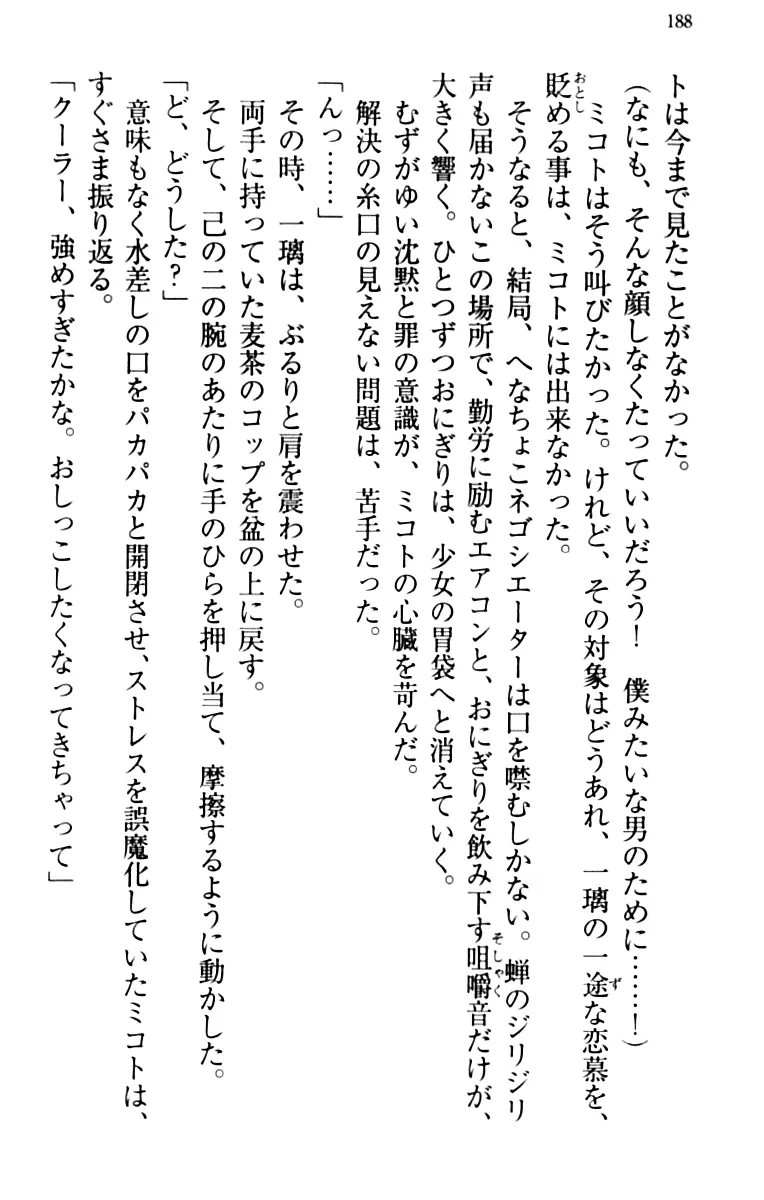 188
トは今まで見たことがなかった。
（なにも、そんな顔しなくたっていいだろう！　僕みたいな男のために……！）
ミコトはそう叫びたかった。けれど、その対象はどうあれ、一璃の一途な恋慕を、
貶める事は、ミコトには出来なかった。
そうなると、結局、へなちょこネゴシエーターは口を噤むしかない。蝉のジリジリ
声も届かないこの場所で、勤労に励むエアコンと、おにぎりを飲み下す咀嚼音だけが、
大きく響く。ひとつずつおにぎりは、少女の胃袋へと消えていく。
むずがゆい沈黙と罪の意識が、ミコトの心臓を苛んだ。
解決の糸口の見えない問題は、苦手だった。
「んっ……」
その時、一璃は、ぶるりと肩を震わせた。
両手に持っていた麦茶のコップを盆の上に戻す。
そして、己の二の腕のあたりに手のひらを押し当て、摩擦するように動かした。
「ど、どうした？」
意味もなく水差しの口をパカパカと開閉させ、ストレスを誤魔化していたミコトは、
すぐさま振り返る。
「クーラー、強めすぎたかな。おしっこしたくなってきちゃって」